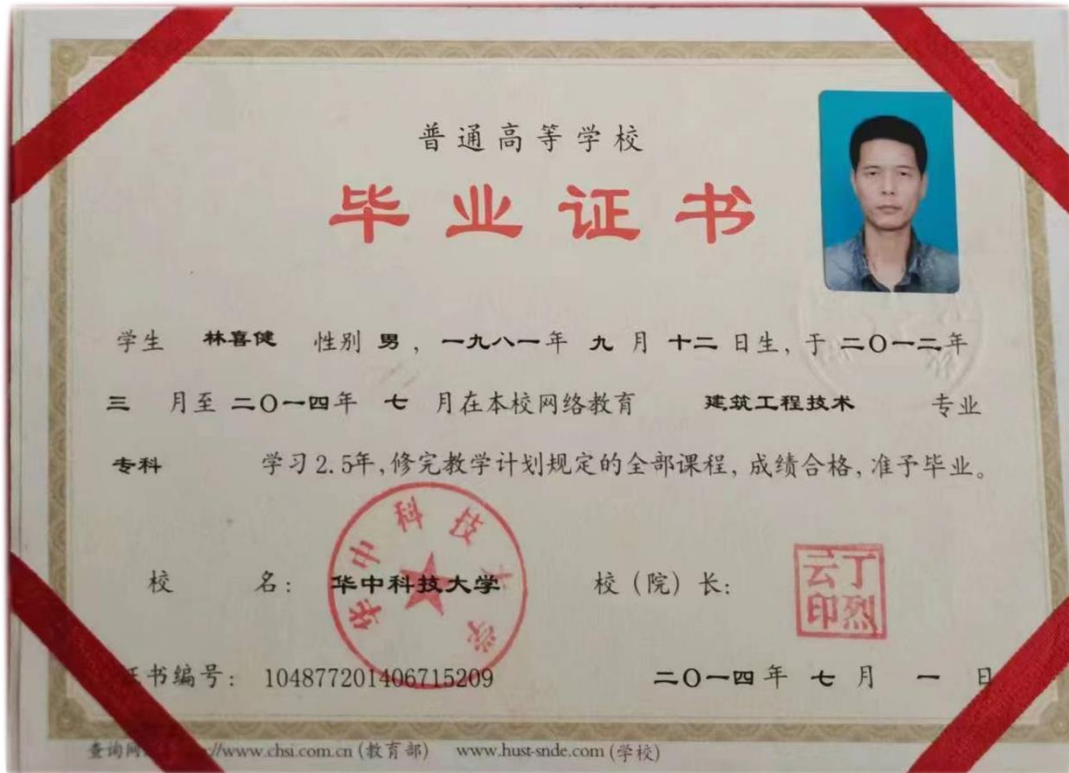 普通高等学校
毕业证书
学生 林喜健 性别 男，一九八一年 九 月 十二 日生，于 二〇一二年
三 月至 二〇一四年 七 月在本校网络教育 建筑工程技术 专业
专科 学习2.5年，修完教学计划规定的全部课程，成绩合格，准予毕业。
校 名： 华中科技大学 校（院）长：
华中科技大学
丁烈云印
证书编号： 104877201406715209 二〇一四年 七 月 一 日
查询网 //www.chsi.com.cn (教育部) www.hust-snde.com (学校)